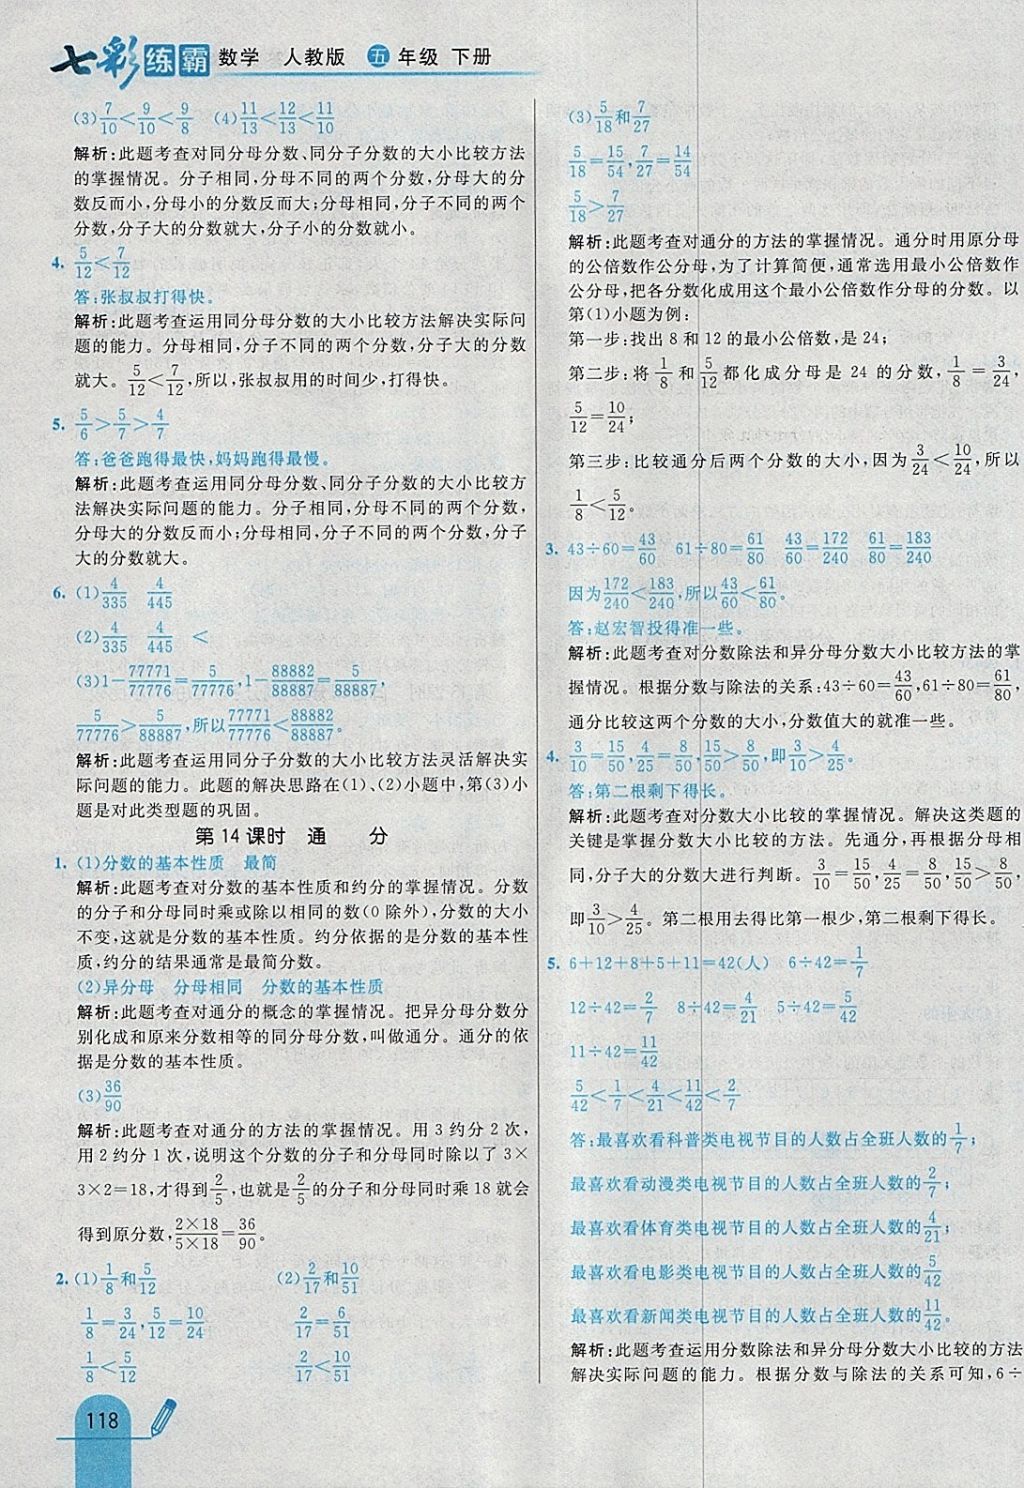 七彩练霸 数学 人教版 五年级 下册
(3)7/10<9/10<9/8 (4)11/13<12/13<11/10
解析:此题考查对同分母分数、同分子分数的大小比较方法
的掌握情况。分子相同,分母不同的两个分数,分母大的分
数反而小,分母小的分数反而大;分母相同,分子不同的两个
分数,分子大的分数就大,分子小的分数就小。
4. 5/12<7/12
答:张叔叔打得快。
解析:此题考查运用同分母分数的大小比较方法解决实际问
题的能力。分母相同,分子不同的两个分数,分子大的分数
就大。5/12<7/12,所以,张叔叔用的时间少,打得快。
5. 5/6>5/7>4/7
答:爸爸跑得最快,妈妈跑得最慢。
解析:此题考查运用同分母分数、同分子分数的大小比较方
法解决实际问题的能力。分子相同,分母不同的两个分数,
分母大的分数反而小;分母相同,分子不同的两个分数,分子
大的分数就大。
6. (1)4/335 4/445
(2)4/335 4/445 <
(3)1−77771/77776=5/77776,1−88882/88887=5/88887,
5/77776>5/88887,所以77771/77776<88882/88887。
解析:此题考查运用同分子分数的大小比较方法灵活解决实
际问题的能力。此题的解决思路在(1)、(2)小题中,第(3)小
题是对此类型题的巩固。
第14课时 通 分
1. (1)分数的基本性质 最简
解析:此题考查对分数的基本性质和约分的掌握情况。分数
的分子和分母同时乘或除以相同的数(0除外),分数的大小
不变,这就是分数的基本性质。约分依据的是分数的基本性
质,约分的结果通常是最简分数。
(2)异分母 分母相同 分数的基本性质
解析:此题考查对通分的概念的掌握情况。把异分母分数分
别化成和原来分数相等的同分母分数,叫做通分。通分的依
据是分数的基本性质。
(3)36/90
解析:此题考查对通分的方法的掌握情况。用3约分2次,
用2约分1次,说明这个分数的分子和分母同时除以了3×
3×2=18,才得到2/5,也就是2/5的分子和分母同时乘18就会
得到原分数,2×18/5×18=36/90。
2. (1)1/8和5/12 (2)2/17和10/51
1/8=3/24,5/12=10/24 2/17=6/51
1/8<5/12 2/17<10/51
118
(3)5/18和7/27
5/18=15/54,7/27=14/54
5/18>7/27
解析:此题考查对通分的方法的掌握情况。通分时用原分母
的公倍数作公分母,为了计算简便,通常选用最小公倍数作
公分母,把各分数化成用这个最小公倍数作分母的分数。以
第(1)小题为例:
第一步:找出8和12的最小公倍数,是24;
第二步:将1/8和5/12都化成分母是24的分数,1/8=3/24,
5/12=10/24;
第三步:比较通分后两个分数的大小,因为3/24<10/24,所以
1/8<5/12。
3. 43÷60=43/60 61÷80=61/80 43/60=172/240 61/80=183/240
因为172/240<183/240,所以43/60<61/80。
答:赵宏智投得准一些。
解析:此题考查对分数除法和异分母分数大小比较方法的掌
握情况。根据分数与除法的关系:43÷60=43/60,61÷80=61/80,
通分比较这两个分数的大小,分数值大的就准一些。
4. 3/10=15/50,4/25=8/50,15/50>8/50,即3/10>4/25。
答:第二根剩下得长。
解析:此题考查对分数大小比较的掌握情况。解决这类题的
关键是掌握分数大小比较的方法。先通分,再根据分母相
同,分子大的分数大进行判断。3/10=15/50,4/25=8/50,15/50>8/50,
即3/10>4/25。第二根用去得比第一根少,第二根剩下得长。
5. 6+12+8+5+11=42(人) 6÷42=1/7
12÷42=2/7 8÷42=4/21 5÷42=5/42
11÷42=11/42
5/42<1/7<4/21<11/42<2/7
答:最喜欢看科普类电视节目的人数占全班人数的1/7;
最喜欢看动漫类电视节目的人数占全班人数的2/7;
最喜欢看体育类电视节目的人数占全班人数的4/21;
最喜欢看电影类电视节目的人数占全班人数的5/42
最喜欢看新闻类电视节目的人数占全班人数的11/42。
解析:此题考查运用分数除法和异分母分数大小比较的方法
解决实际问题的能力。根据分数与除法的关系可知,6÷